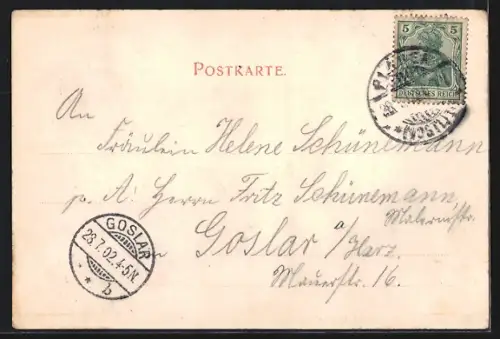 POSTKARTE.
5 5
DEUTSCHES REICH
An
Fräulein Helene Schünemann
p. A: Herrn Fritz Schünemann,
Malermstr.
Goslar a/Harz.
Mauerstr. 16.
GOSLAR
28.7.02.4-5N.
* * b